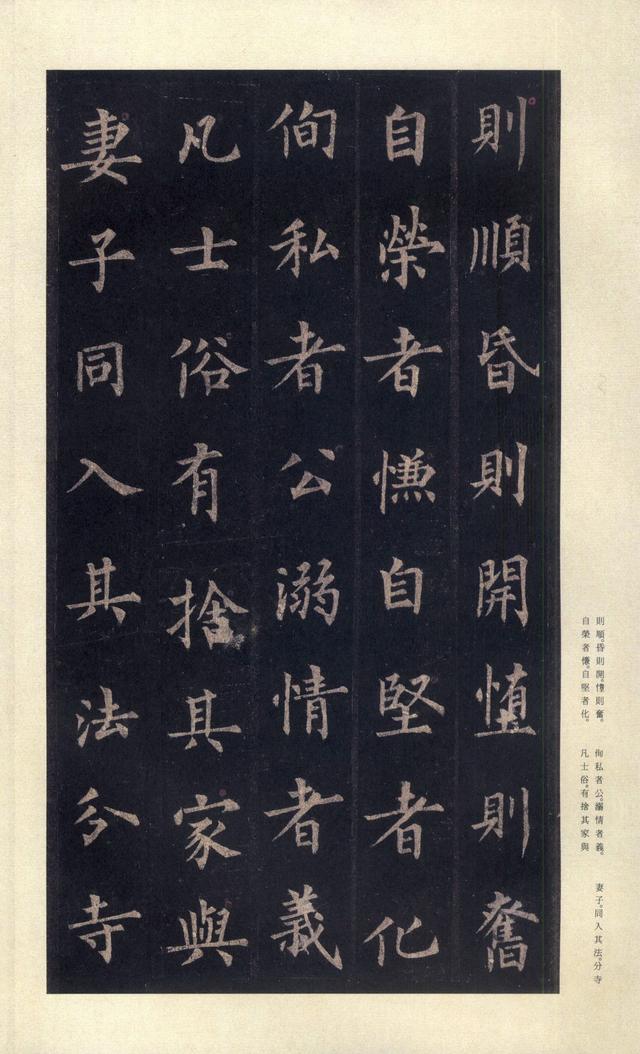 則順昏則開憻則奮
自榮者慊自堅者化
侚私者公溺情者義
凡士俗有捨其家與
妻子同入其法分寺
則順。昏則開。憻則奮。
自榮者慊。自堅者化。
侚私者公。溺情者義。
凡士俗。有捨其家與
妻子。同入其法。分寺